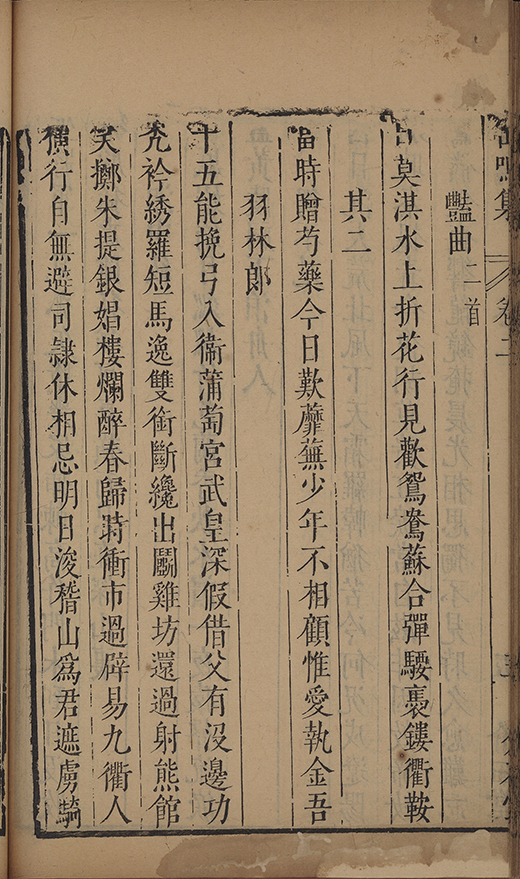 集 卷二
豔曲二首
莫淇水上折花行見歡鴛鴦蘇合彈騕褭鏤衢鞍
其二
當時贈芍藥今日歎蘼蕪少年不相顧惟愛執金吾
羽林郎
十五能挽弓入衞蒲萄宮武皇深假借父有沒邊功
禿衿綉羅短馬逸雙銜斷纔出鬭雞坊還過射熊館
笑擲朱提銀娼樓爛醉春歸時衝市過辟易九衢人
橫行自無避司隷休相忌明日浚稽山爲君遮虜騎